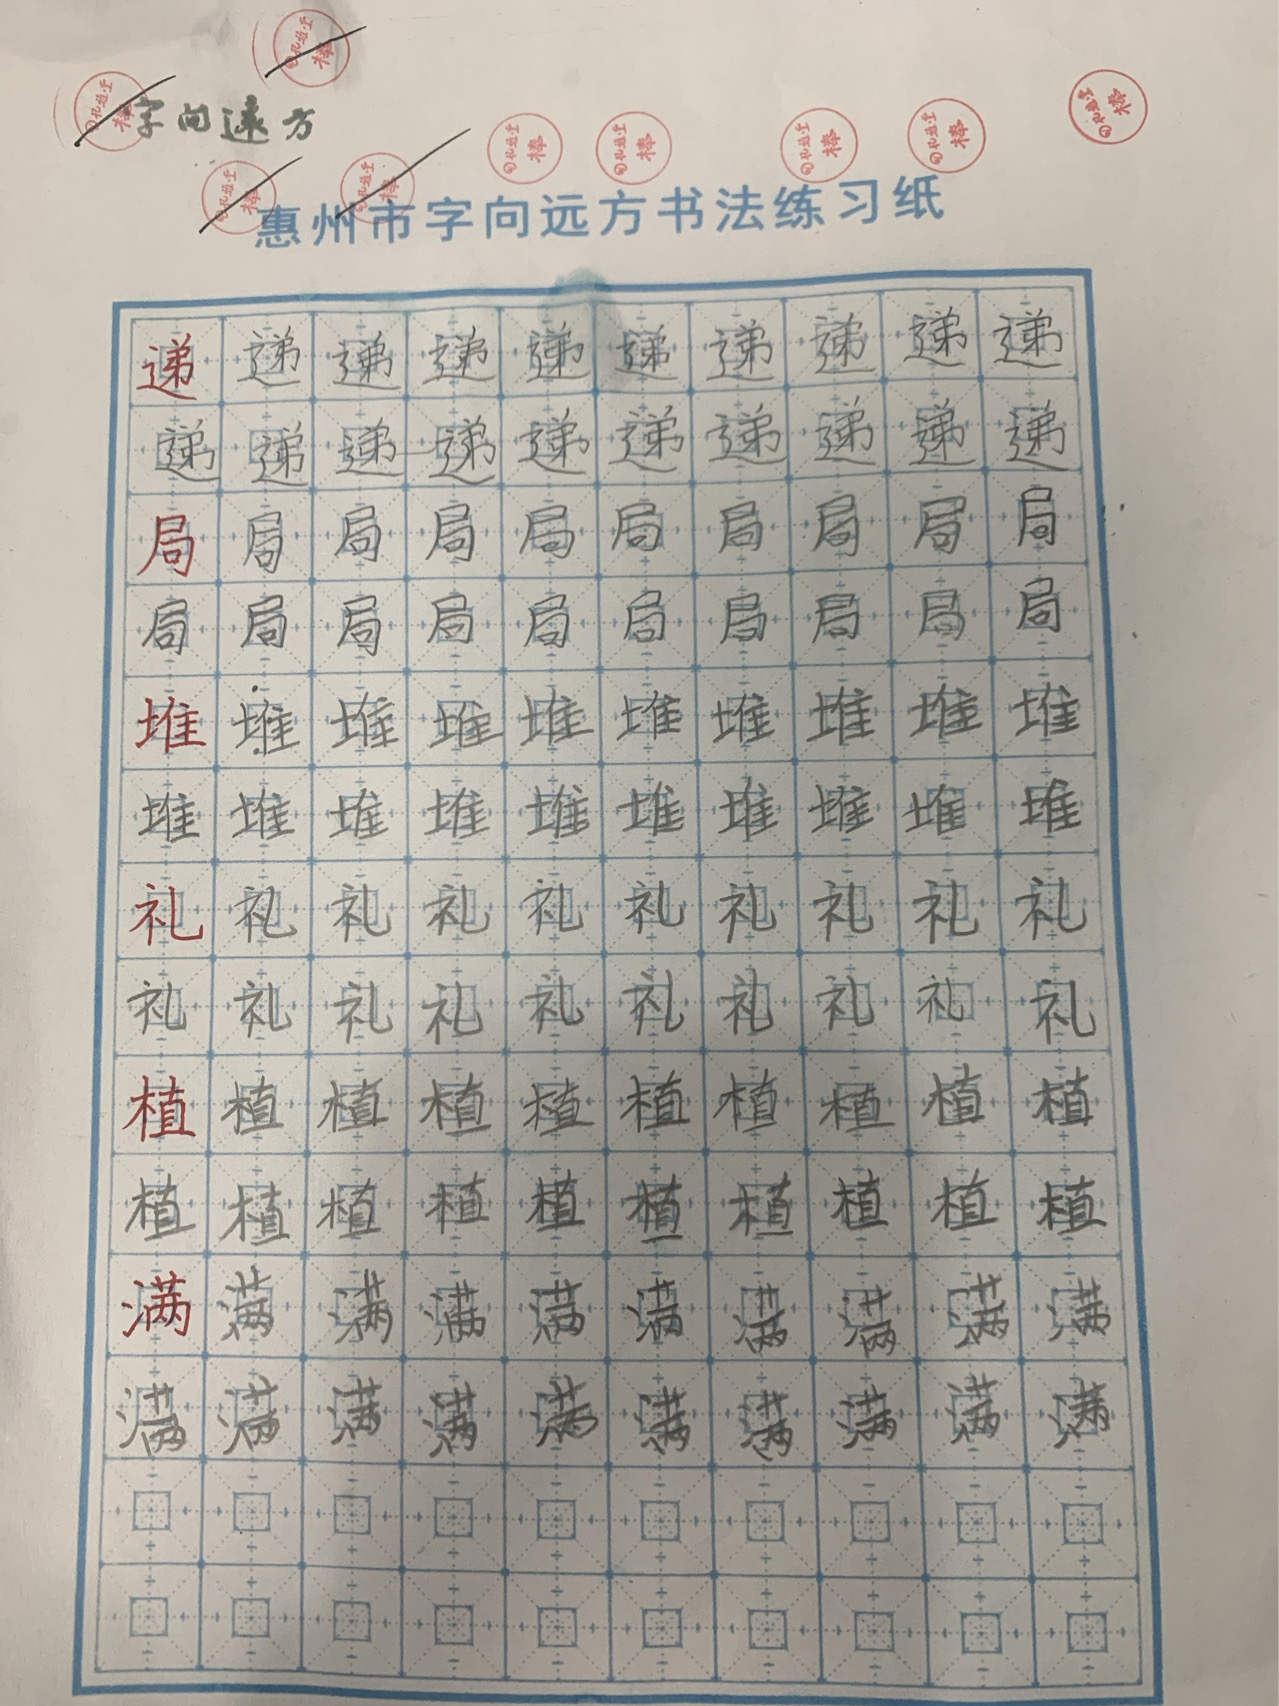 棒
棒
字向远方
棒
棒
棒
棒
棒
棒
棒
惠州市字向远方书法练习纸
递递递递递递递递递递
递递递递递递递递递递
局局局局局局局局局局
局局局局局局局局局局
堆堆堆堆堆堆堆堆堆堆
堆堆堆堆堆堆堆堆堆堆
礼礼礼礼礼礼礼礼礼礼
礼礼礼礼礼礼礼礼礼礼
植植植植植植植植植植
植植植植植植植植植植
满满满满满满满满满满
满满满满满满满满满满